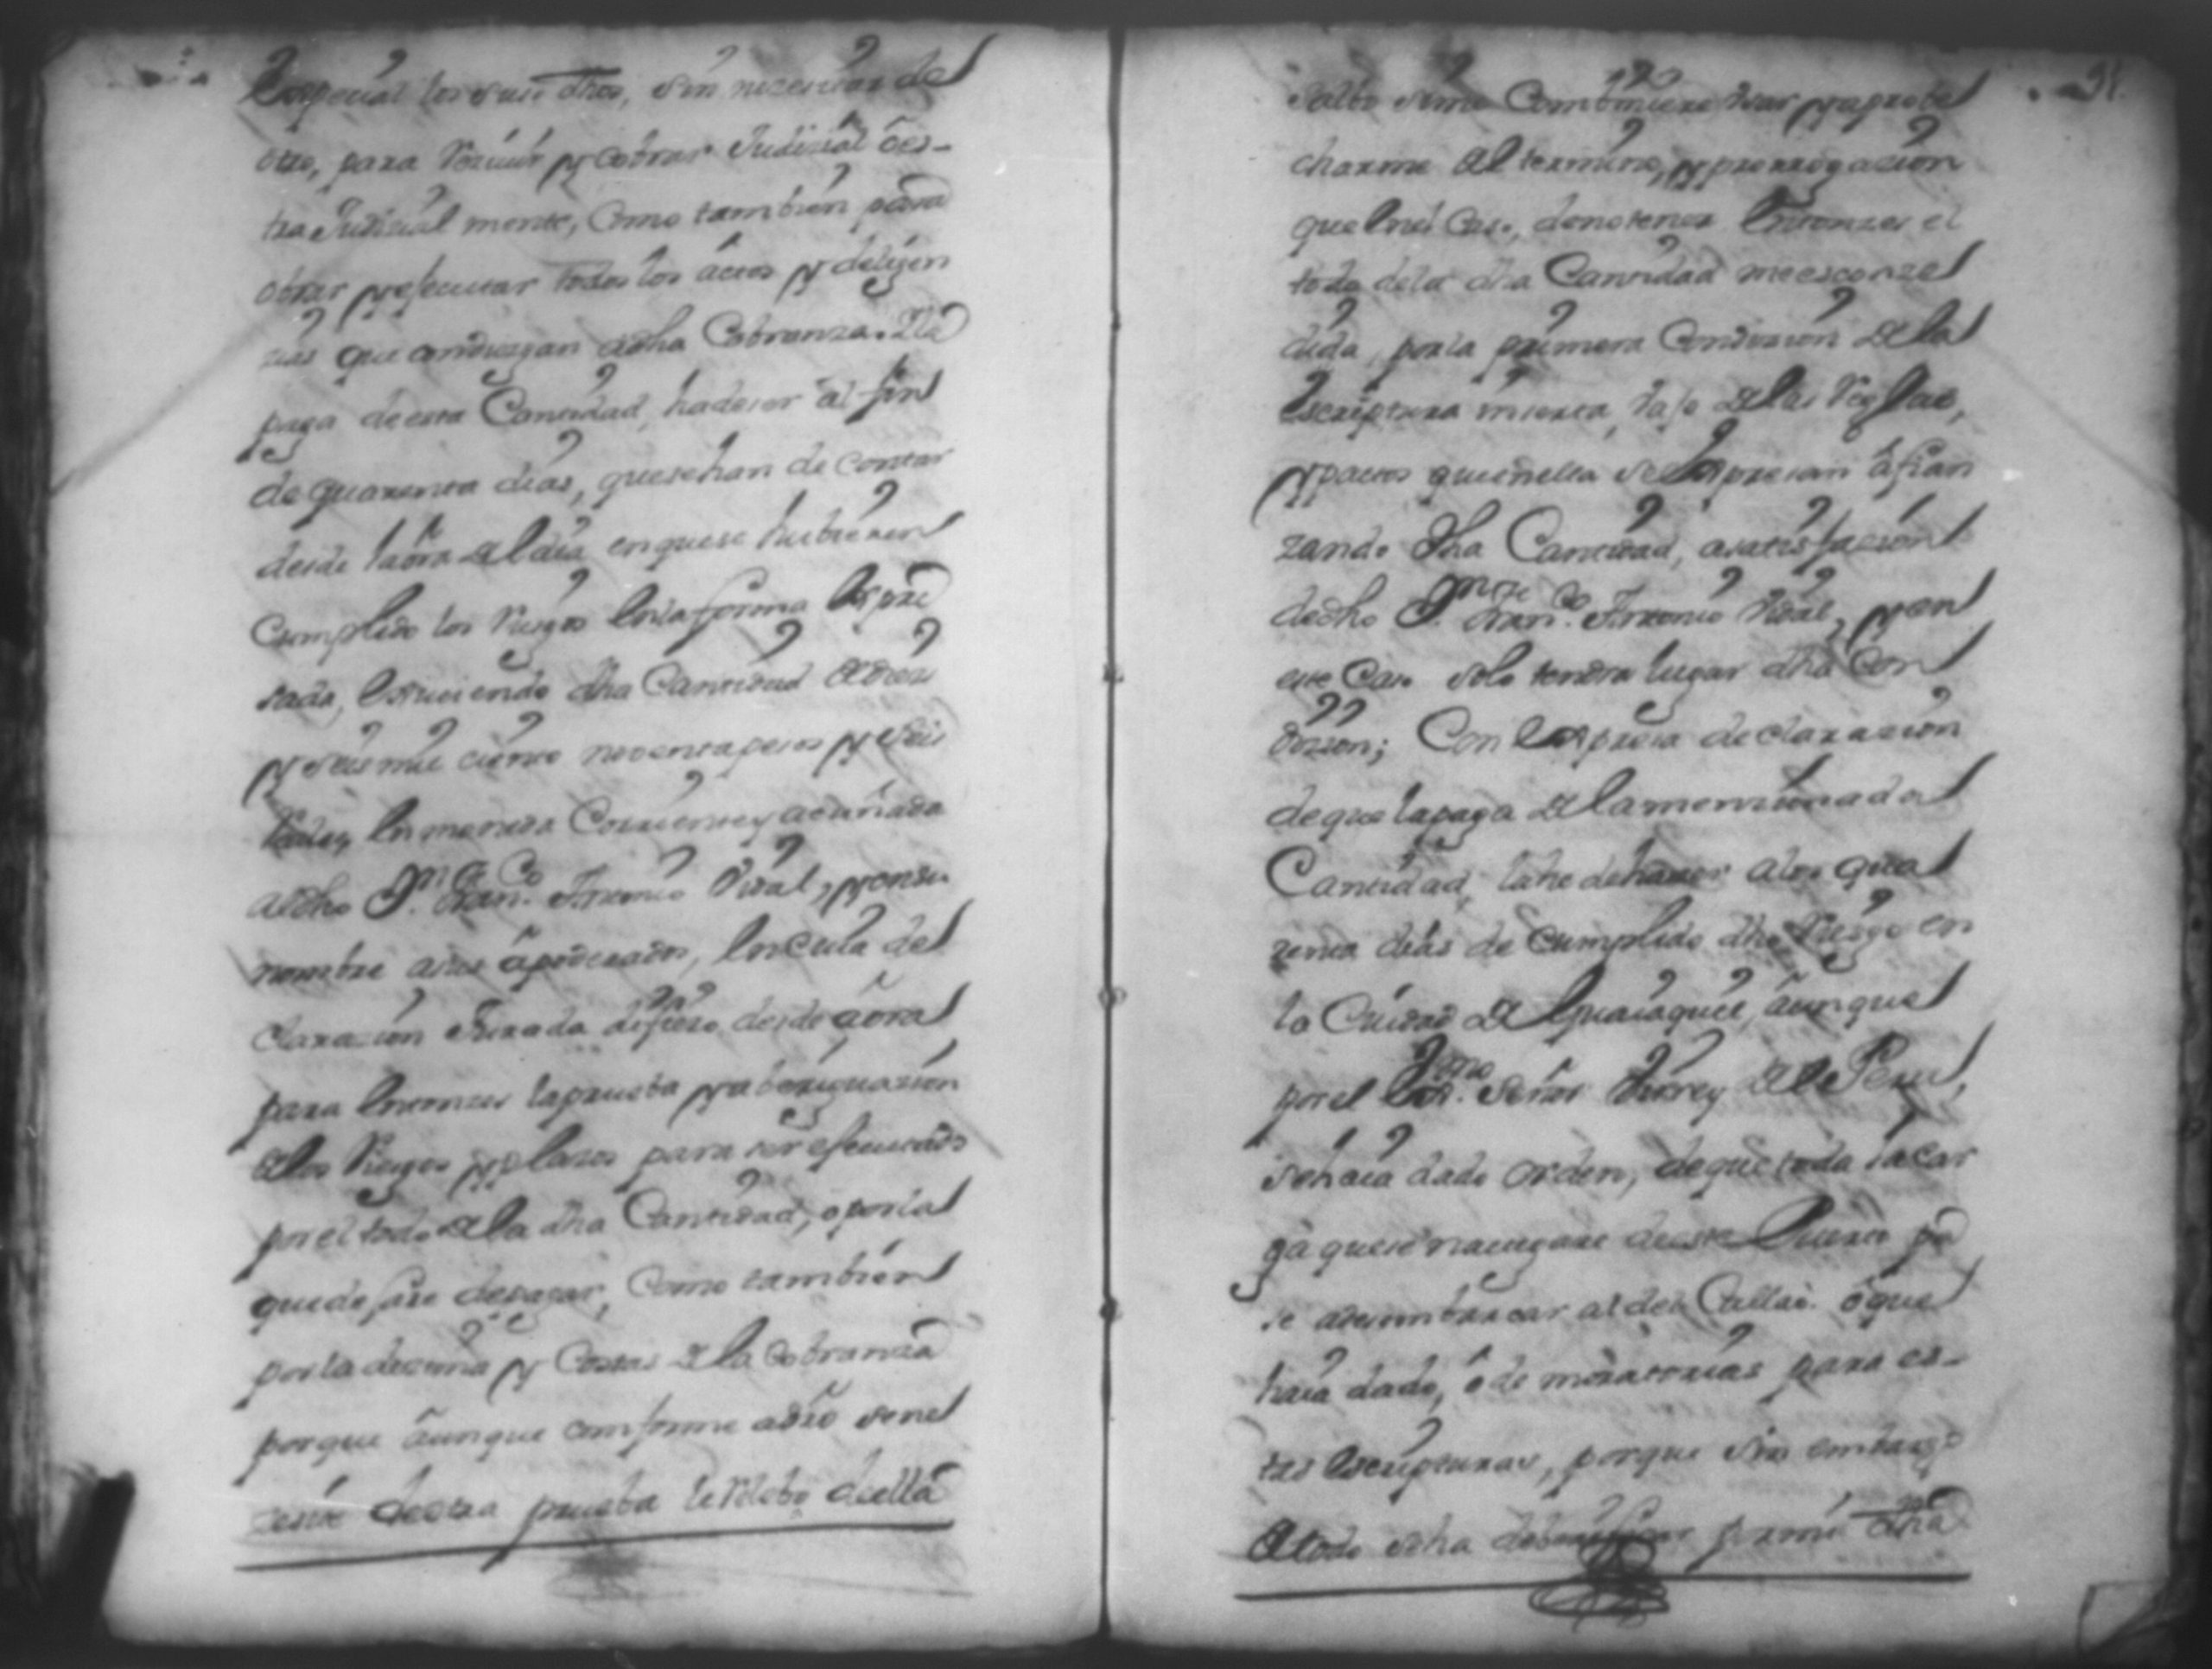 Especial los suso dhos, sin nezesitar de
otro, para Reziuir y cobrar Judizial o es-
tra Judizial mente, como tambien para
obrar y efecutar todos los actos y deligen
zias que conduzgan a dha Cobranza. Y la
paga de esta Cantidad, ha de ser al fin
de quarenta dias, que se han de contar
desde la ora del dia en que se hubieren
Cumplido los Riesgos en la forma Expre
sada, essiuiendo dha Cantidad de diez
y seis mil ciento noventa pesos y seis
Reales, en moneda Corriente y acuñada
al dho Dn. Fran.co Antonio Vidal, y en su
nombre a sus apoderados, en cuia de
clarazion Jurada difiero desde aora
para entonzes la prueba y aberiguazion
de los Riesgos y plazos para ser efecutado
por el todo de la dha Cantidad, o por la
que defare de pagar, Como tambien
por la dezima y Costas de la Cobranza
porque aunque conforme a dro se ne
zesite de otra prueba le Relebo de ella
salbo si me Combiniere Usar y aprobe
charme del termino, y prorrogazion
que en el Caso, de no tener Entonzes el
todo de la dha Cantidad me es conze
dida, por la primera Condizion de la
escriptura inserta, bajo de las Reglas,
y pactos que en ella se Expresan afian
zando dha Cantidad, a satisfazion
de dho Dn. Fran.co Antonio Vidal, y en
este Caso solo tendra lugar dha Con
dizion; Con Expresa declarazion
de que la paga de la menzionada
Cantidad, la he de hazer a los qua
renta dias de Cumplido dho Riesgo en
la Ciudad de Guaiaquil, aunque
por el Ex.mo Señor Virrey del Peru,
se haia dado orden, de que toda la car
ga que se nauegare de este Puerto pa
se a desembarcar al del Callao. o que
haia dado, o de moratorias para es-
tas Escripturas, porque sin embargo
de todo se ha de berificar por mi dha